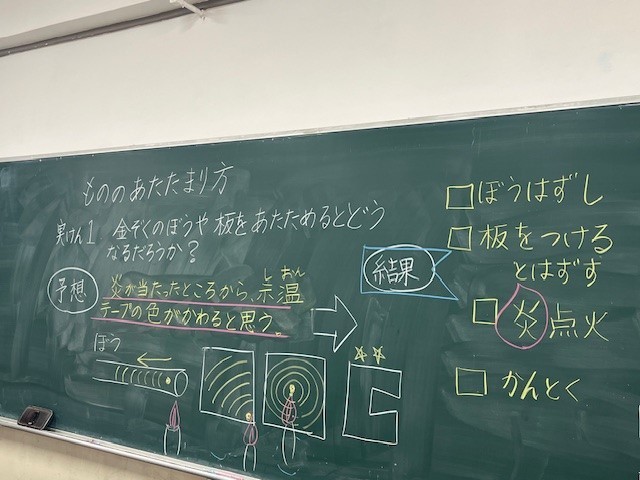 もののあたたまり方
実けん1 金ぞくのぼうや板をあたためるとどう
なるだろうか?
予想
炎が当たったところから、示温
しおん
テープの色がかわると思う。
ぼう
結果
ぼうはずし
板をつける
とはずす
炎点火
かんとく